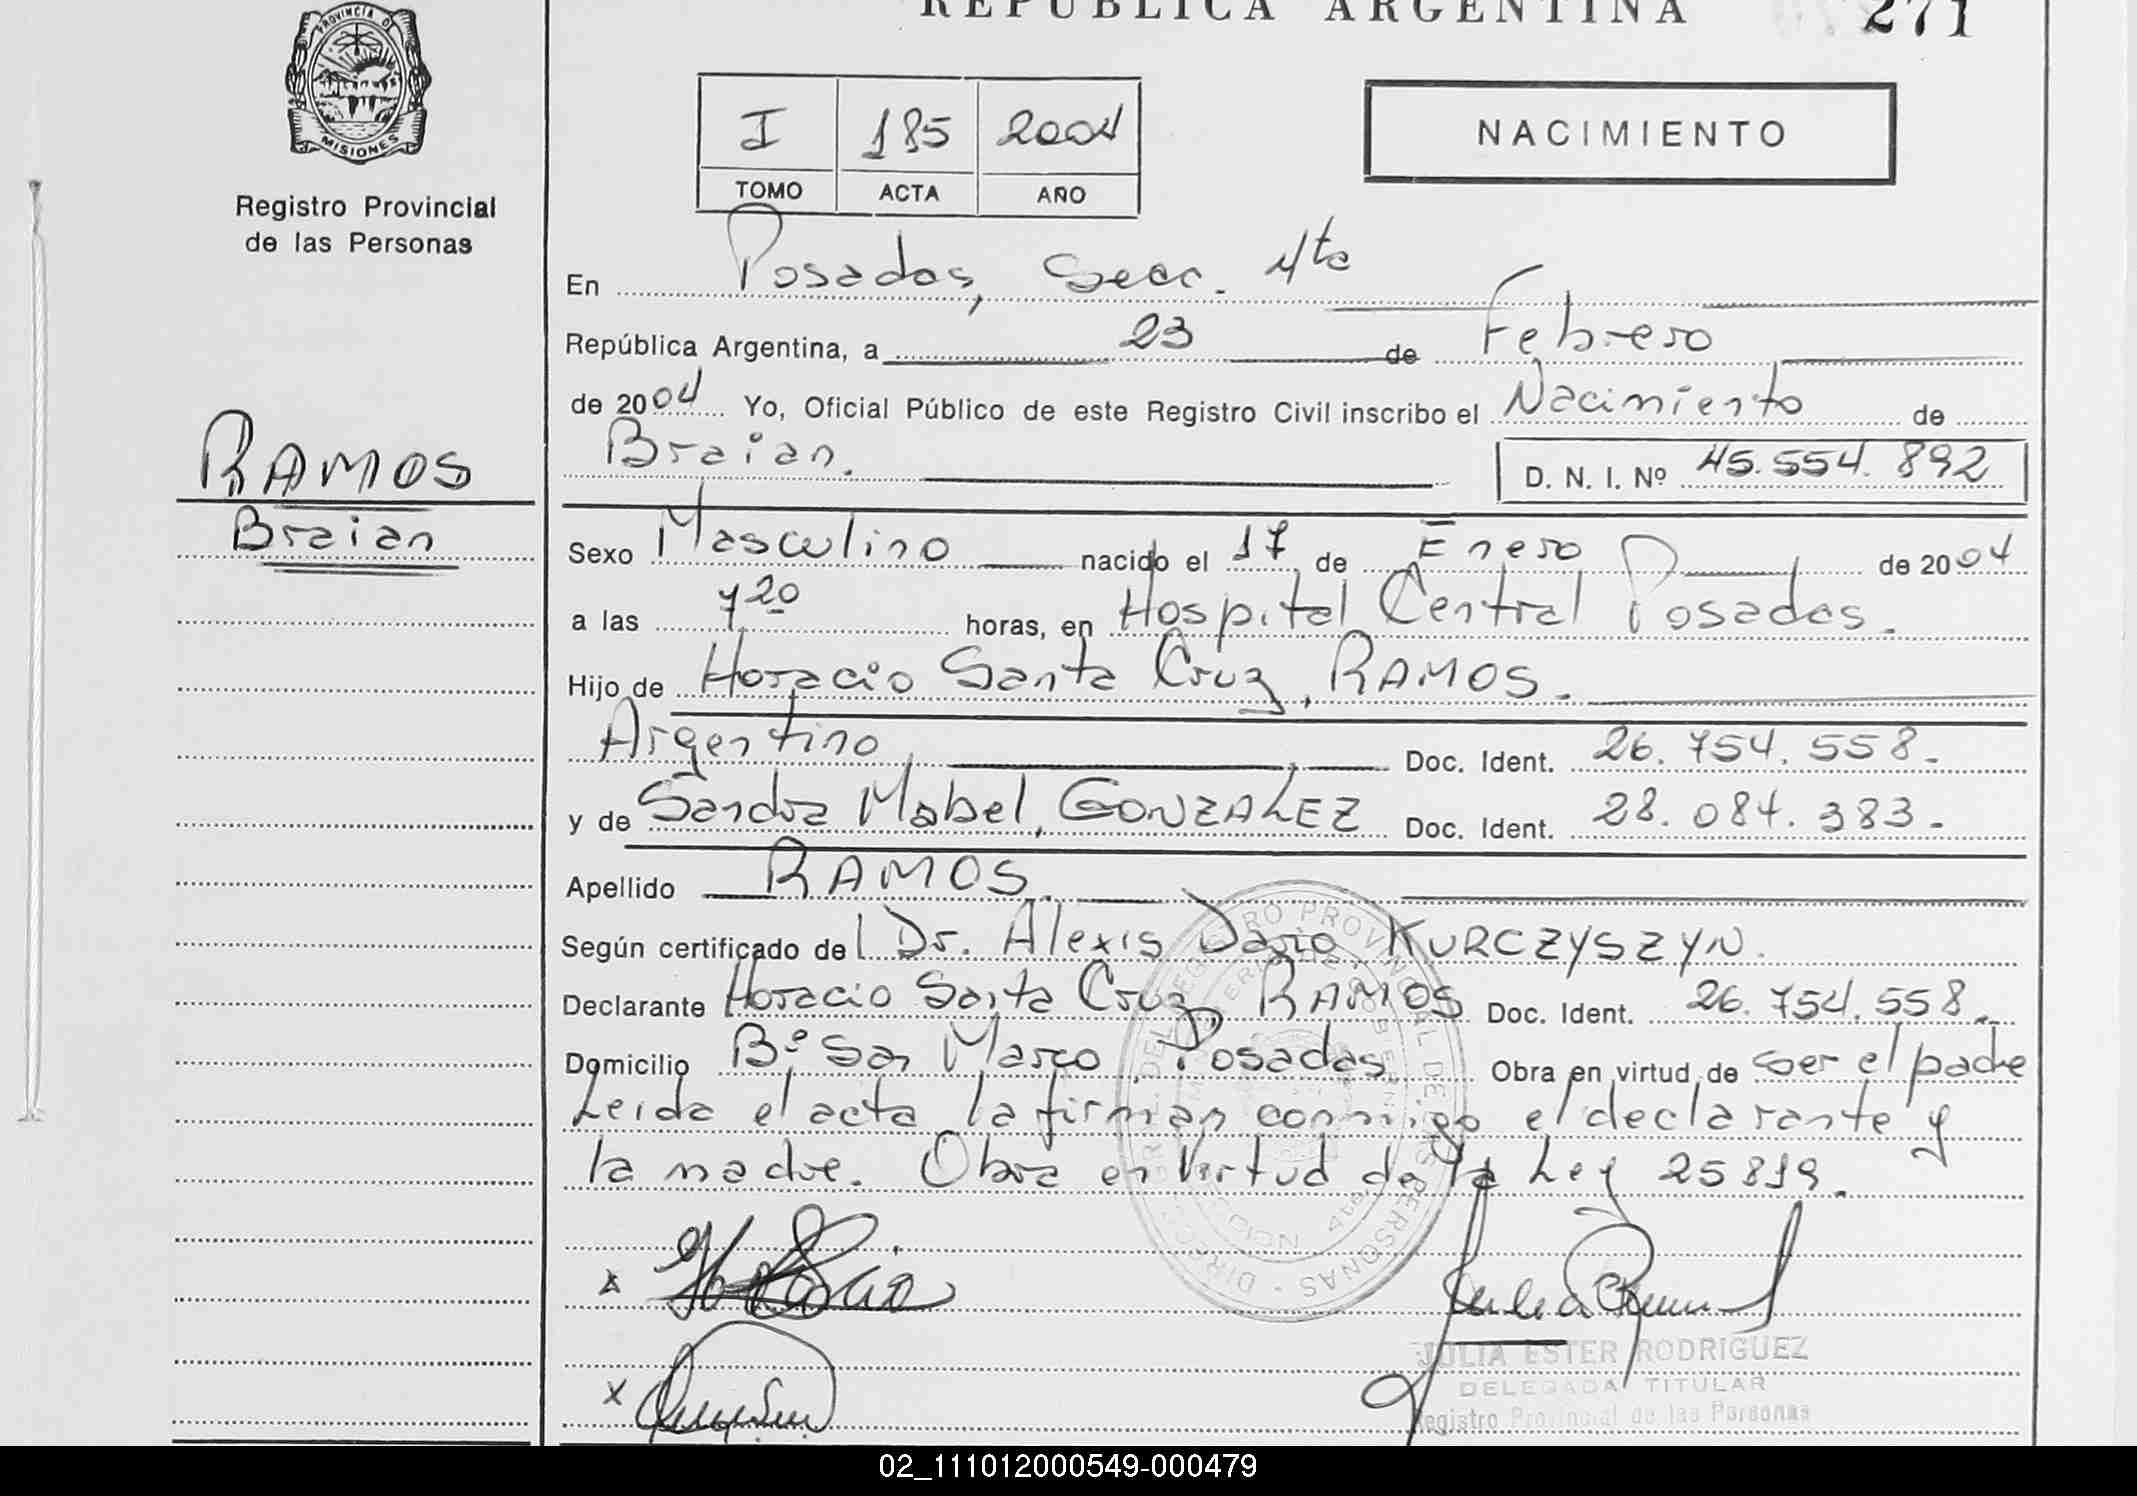 REPUBLICA ARGENTINA 271
PROVINCIA D
MISIONES
Registro Provincial
de las Personas
I 185 2004
TOMO ACTA AÑO
NACIMIENTO
En Posadas, Secc. 4ta
República Argentina, a 23 de Febrero
de 2004 Yo, Oficial Público de este Registro Civil inscribo el Nacimiento de
Braian. D. N. I. Nº 45.554.892
RAMOS
Braian
Sexo Masculino nacido el 17 de Enero de 2004
a las 7 20 horas, en Hospital Central Posadas.
Hijo de Horacio Santa Cruz, RAMOS.
Argentino Doc. Ident. 26.754.558.
y de Sandra Mabel, GONZALEZ Doc. Ident. 28.084.383.
Apellido RAMOS.
Según certificado del Dr. Alexis Dario KURCZYSZYN.
Declarante Horacio Santa Cruz, RAMOS Doc. Ident. 26.754.558.
Domicilio Bº San Marco, Posadas. Obra en virtud de ser el padre
Leida el acta la firman conmigo el declarante y
la madre. Obra en Virtud de la Ley 25819.
x
x
JULIA ESTER RODRIGUEZ
DELEGADA TITULAR
Registro Provincial de las Personas
02_111012000549-000479